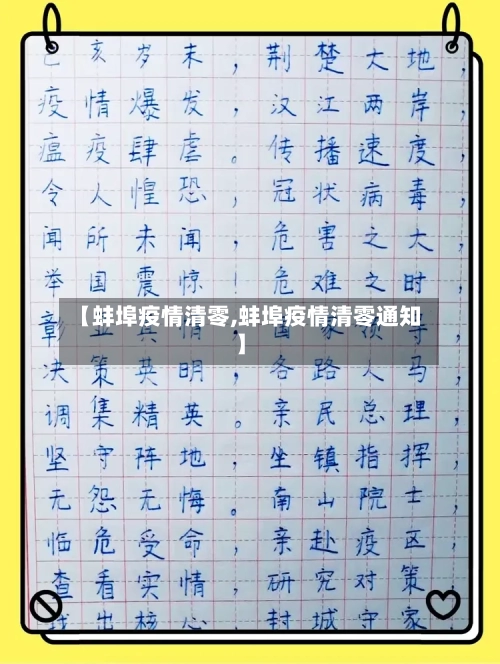 己亥岁末，荆楚大地，
疫情爆发，汉江两岸，
瘟疫肆虐。传播速度，
令人惶恐，冠状病毒，
闻所未闻，危害之大，
举国震惊！危难之时，
【蚌埠疫情清零,蚌埠疫情清零通知
】
决策英明，各路人马，
调集精英。亲民总理，
坚守阵地，坐镇指挥，
无怨无悔。南山院士，
临危受命，亲赴疫区，
查看实情，研究对策，
找出核心，封城守家，